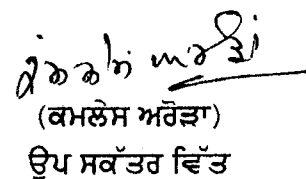 (ਕਮਲੇਸ ਅਰੋੜਾ)
ਉਪ ਸਕੱਤਰ ਵਿੱਤ